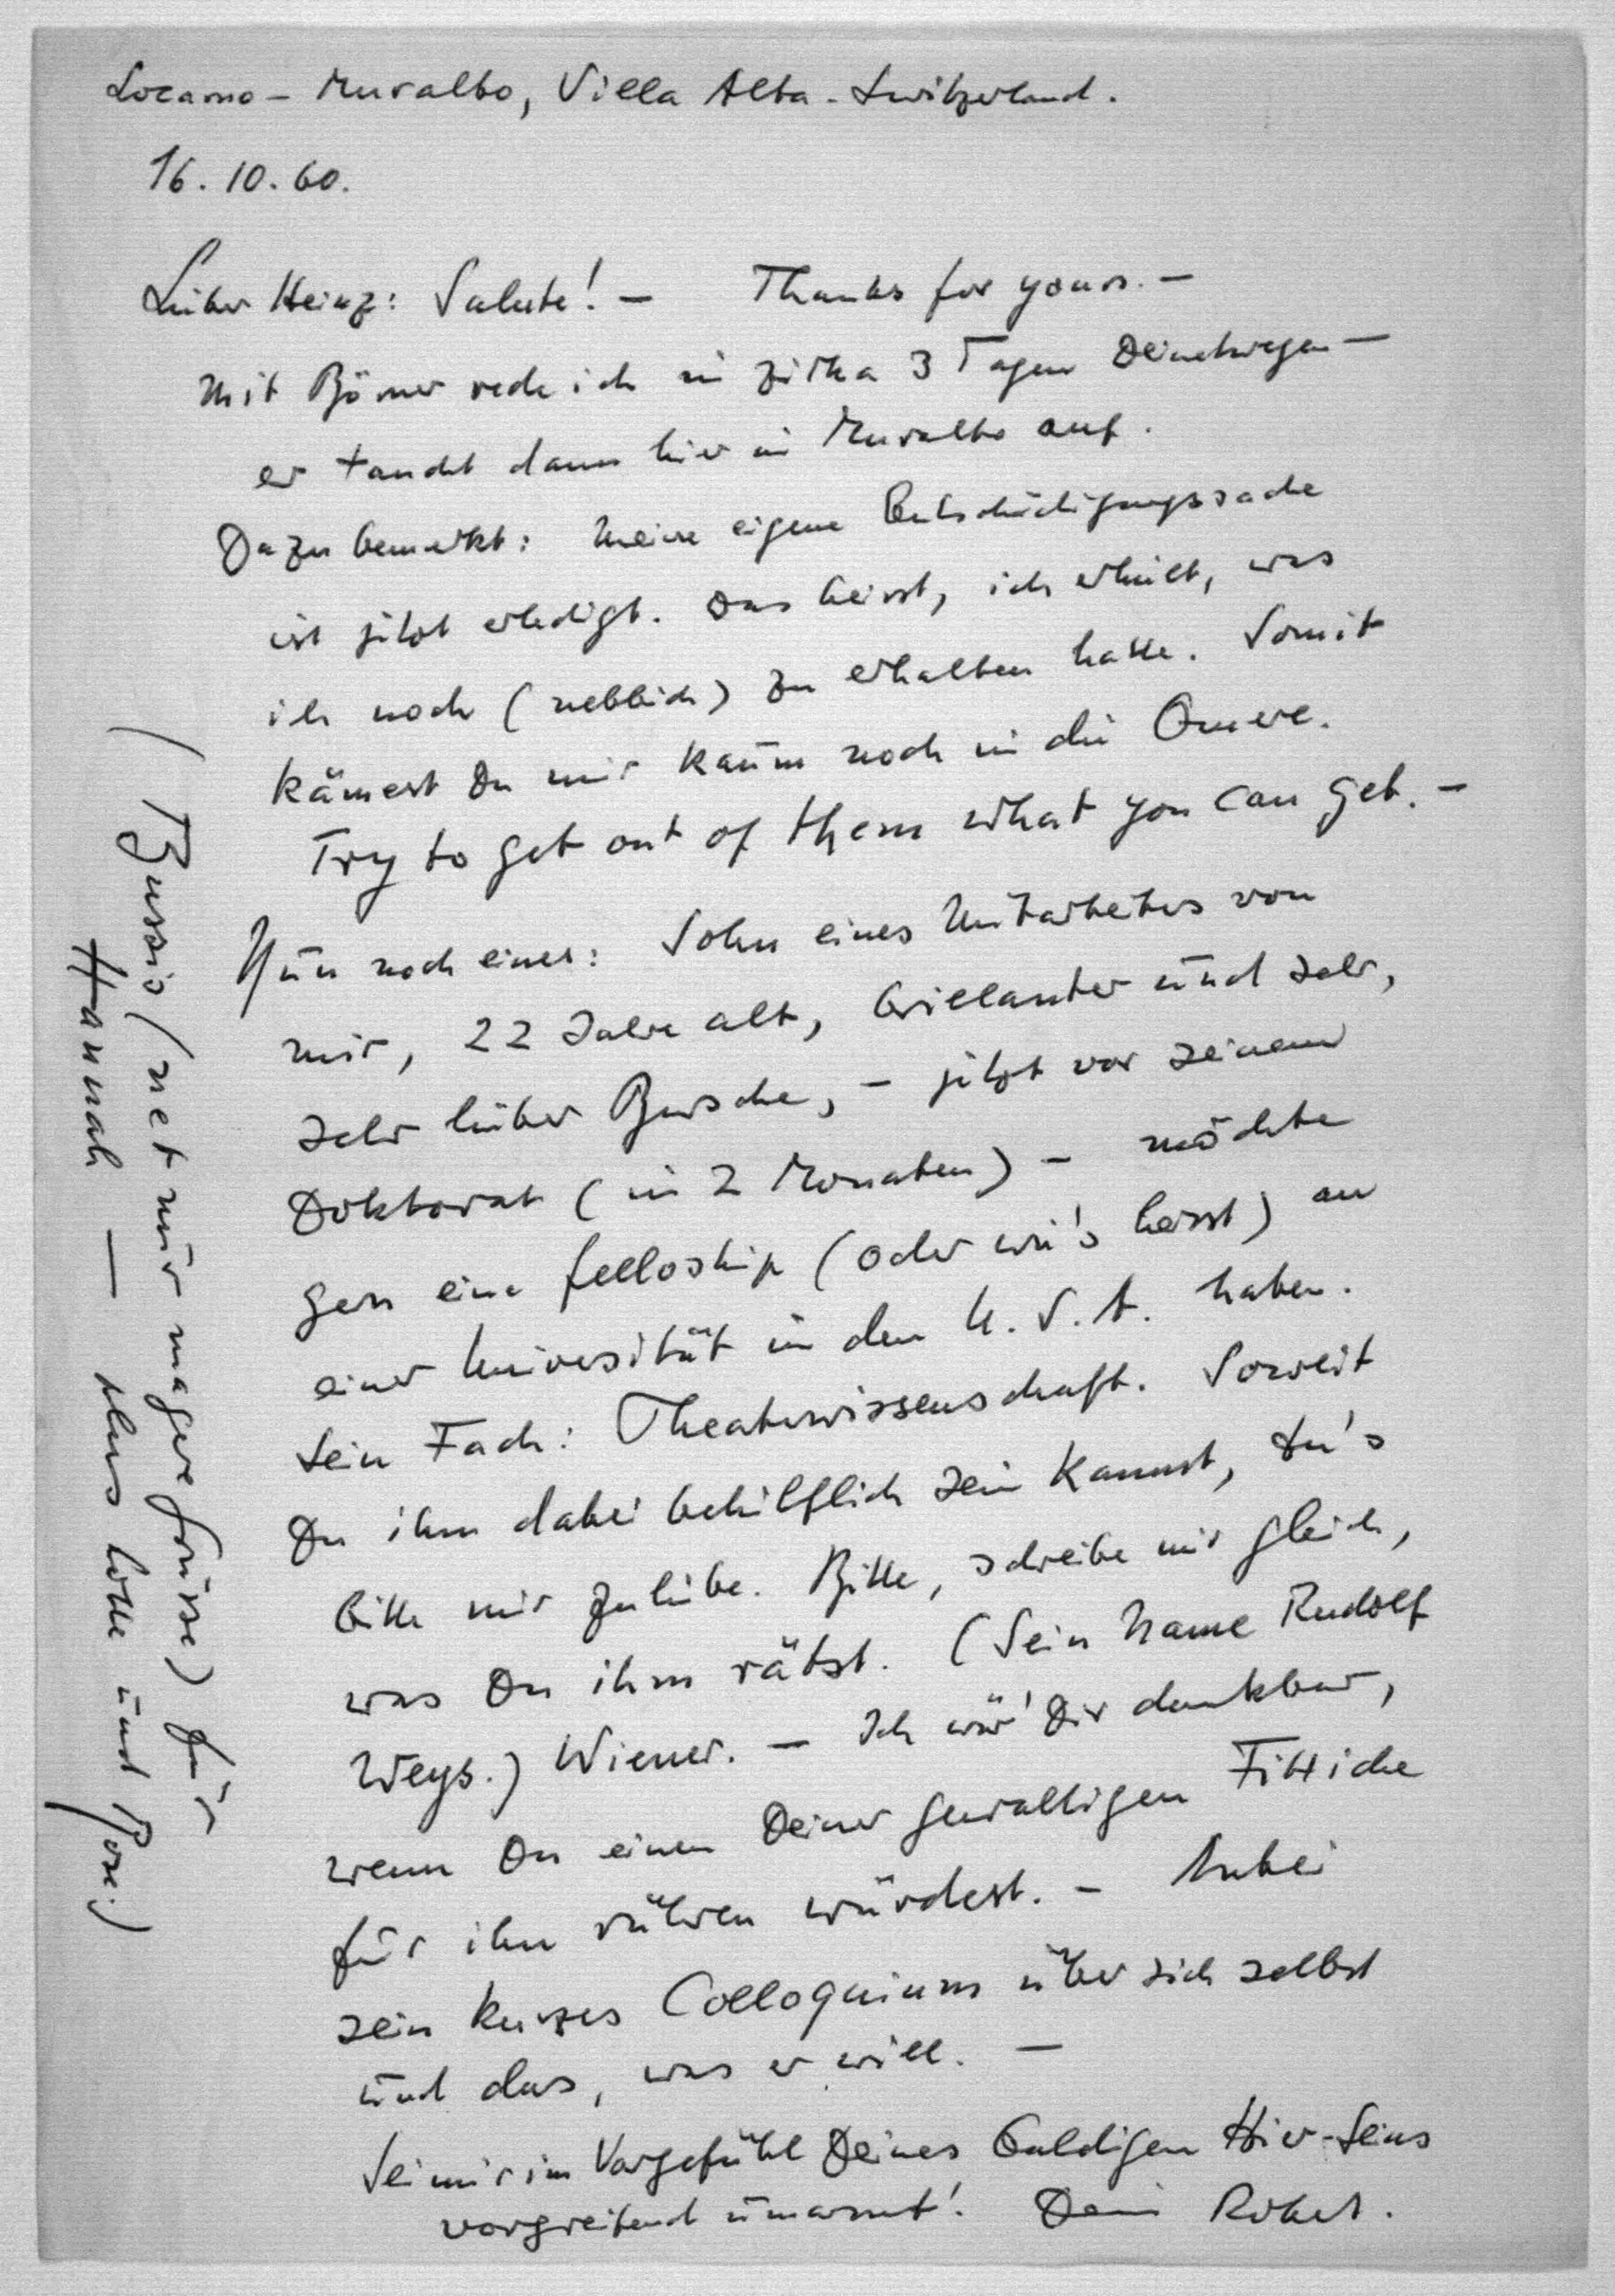 Locarno – Muralto, Villa Alta – Switzerland.
16. 10. 60.
Lieber Heinz: Salute! – Thanks for yours. –
Mit Börner rede ich in zirka 3 Tagen Deinetwegen –
er taucht dann hier in Muralto auf.
Dazu bemerkt: Meine eigene Entschädigungssache
ist jetzt erledigt. Das heisst, ich erhielt, was
ich noch (nebbich) zu erhalten hatte. Somit
kämest Du mir kaum noch in die Quere.
Try to get out of them what you can get. –
Nun noch eines: Sohn eines Mitarbeiters von
mir, 22 Jahre alt, brillanter und sehr,
sehr lieber Bursche, – jetzt vor seinem
Doktorat (in 2 Monaten) – möchte
gern eine felloship (oder wie's heisst) an
einer Universität in den U. S. A. haben.
Sein Fach: Theaterwissenschaft. Soweit
Du ihm dabei behilflich sein kannst, tu's
bitte mir zuliebe. Bitte, schreibe mir gleich,
was Du ihm rätst. (Sein Name Rudolf
Weys.) Wiener. – Ich wär' Dir dankbar,
wenn Du einen Deiner gewaltigen Fittiche
für ihn rühren würdest. – Anbei
sein kurzes Colloquium über sich selbst
und das, was er will. –
Sei mir im Vorgefühl Deines baldigen Hier-Seins
vorgreifend umarmt! Dein Robert.
(Bussis (net nur magere Grüsse) für
Hannah — plus Lotte und Rose.)